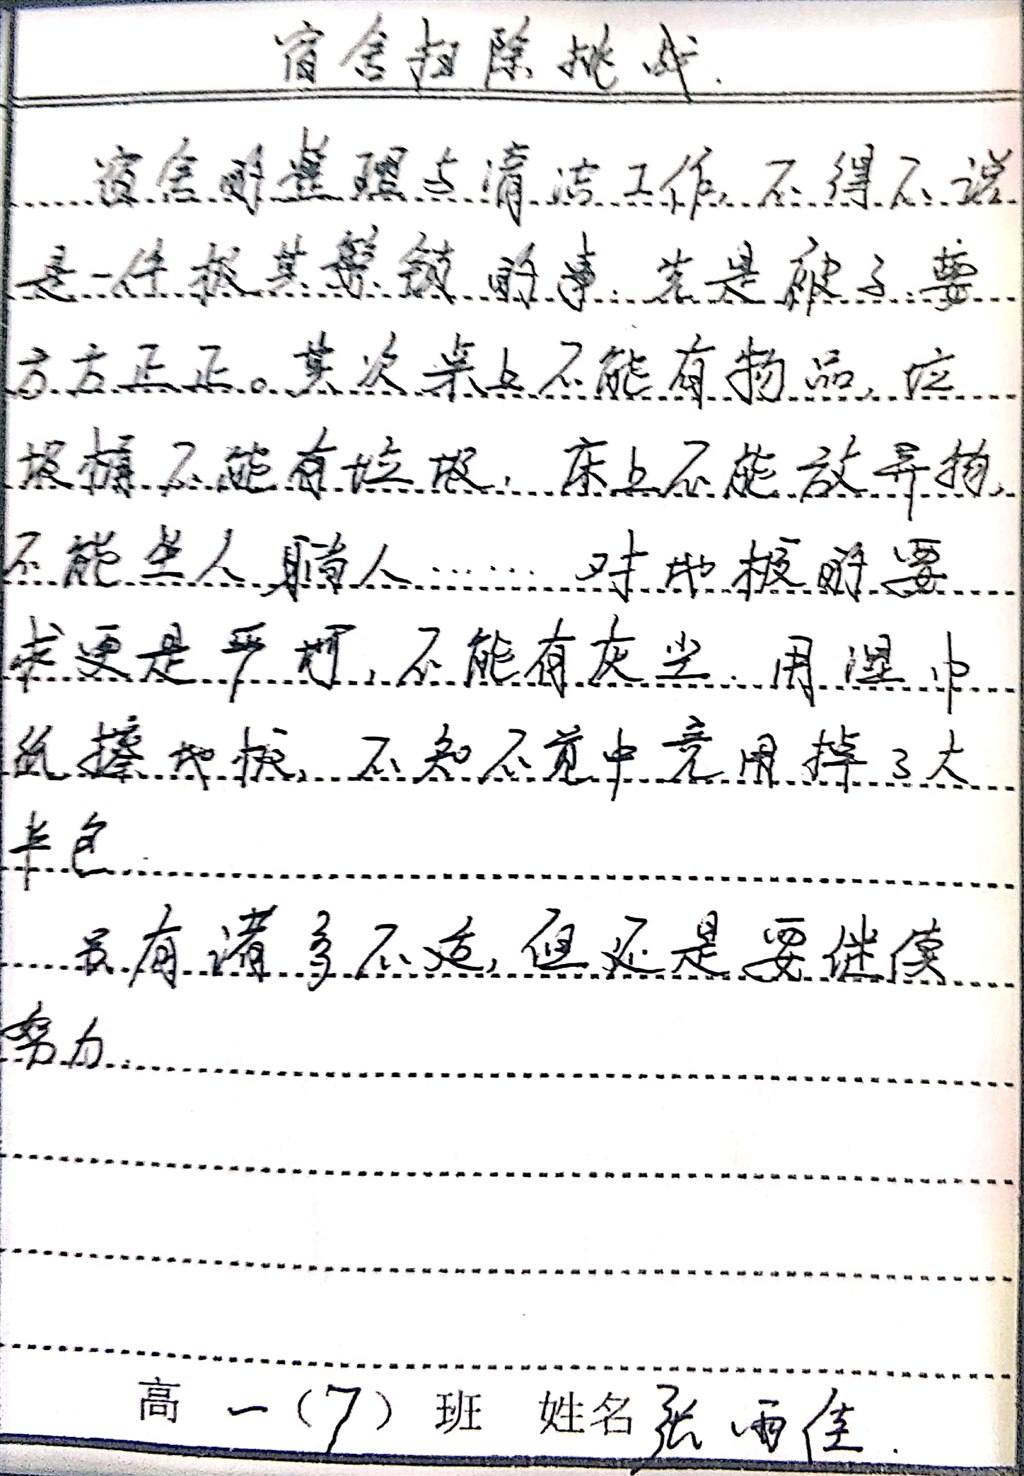 宿舍扫除挑战.
宿舍的整理与清洁工作,不得不说
是一件极其繁锁的事.先是被子要
方方正正。其次桌上不能有物品,垃
圾桶不能有垃圾,床上不能放异物,
不能坐人躺人……对地板的要
求更是严苛,不能有灰尘.用湿巾
纸擦地板,不知不觉中竟用掉了大
半包.
虽有诸多不适,但还是要继续
努力.
高一(7)班 姓名张雨佳.